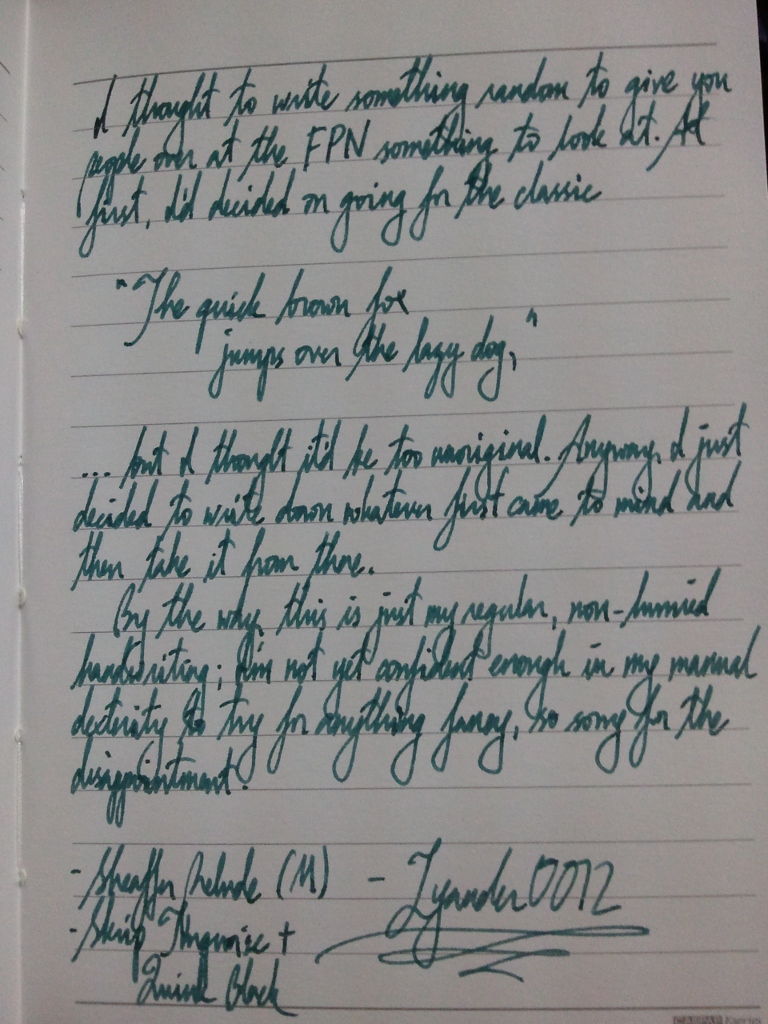 I thought to write something random to give you
people over at the FPN something to look at. At
first, I'd decided on going for the classic
"The quick brown fox
jumps over the lazy dog,"
... but I thought it'd be too unoriginal. Anyway, I just
decided to write down whatever first came to mind and
then take it from there.
By the way, this is just my regular, non-hurried
handwriting; I'm not yet confident enough in my manual
dexterity to try for anything fancy, so sorry for the
disappointment.
- Sheaffer Prelude (M) - Lysander0012
- Skrip Turquoise +
Quink Black